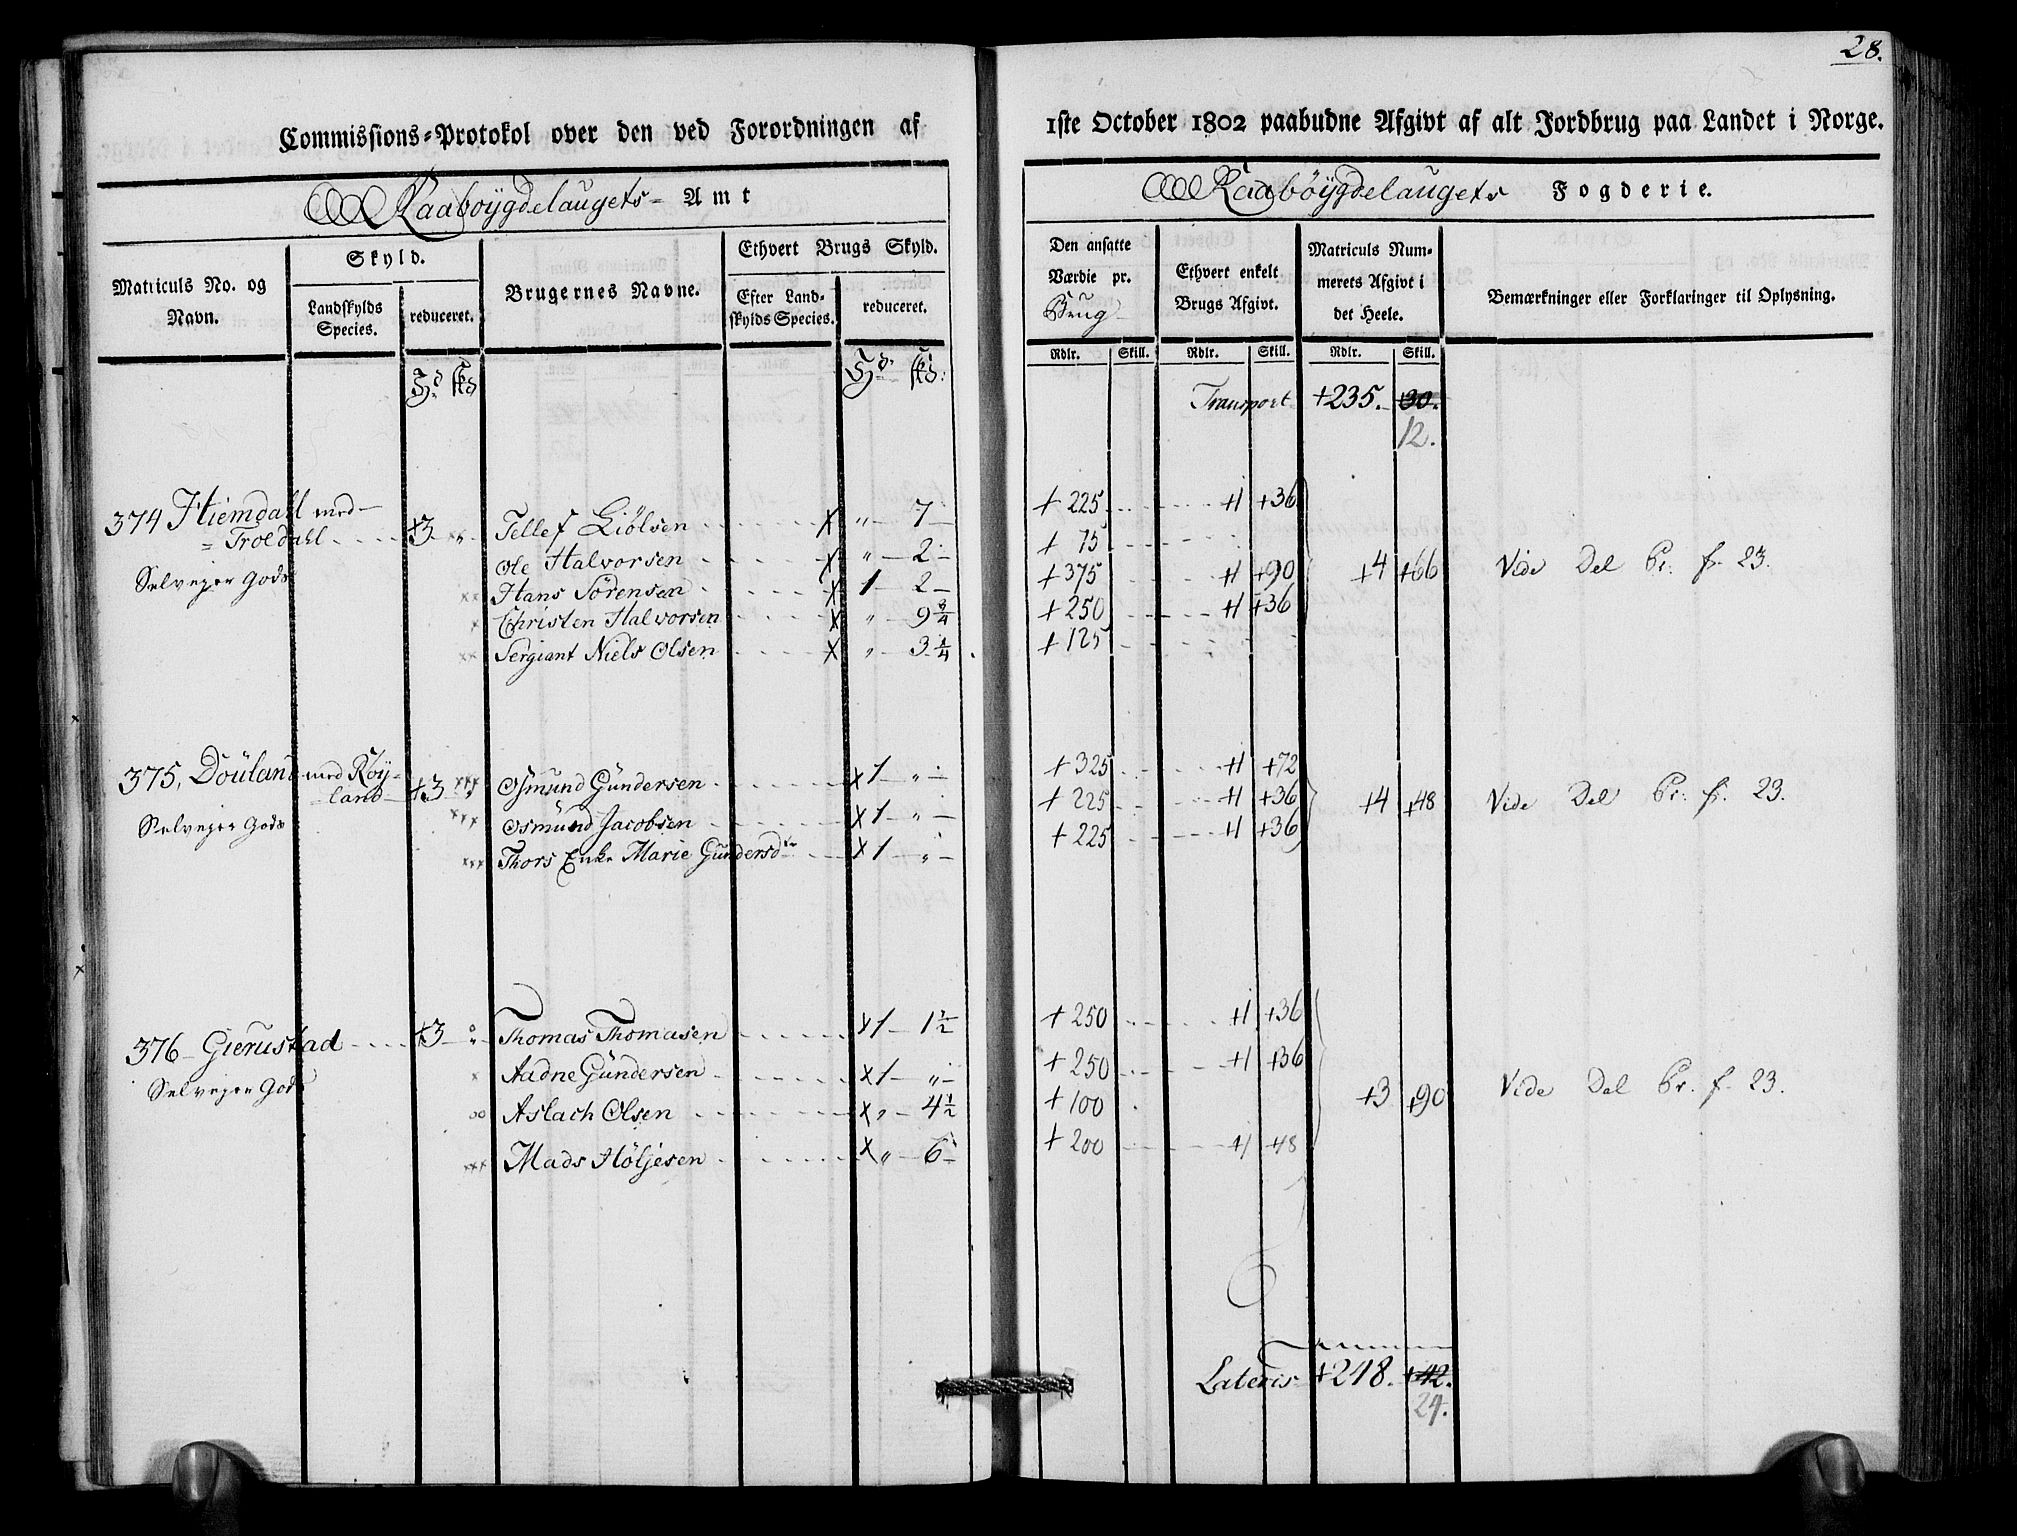 28.
Commissions-Protokol over den ved Forordningen af
1ste October 1802 paabudne Afgivt af alt Jordbrug paa Landet i Norge.
Raaboygdelaugets- Amt
Raabøygdelaugets Fogderie.
Matriculs No. og Navn.
Skyld.
Landskylds Species.
reduceret.
Brugernes Navne.
Ethvert Brugs Skyld.
Efter Landskylds Species.
reduceret.
Den ansatte Værdie pr. Brug
Ethvert enkelt Brugs Afgivt.
Matriculs Nummerets Afgivt i det Heele.
Bemærkninger eller Forklaringer til Oplysning.
Rdlr. Skill. Rdlr. Skill. Rdlr. Skill.
Hd. skd Hd. skd:
Transport +235. 30.
12.
374 Hiemdahl med Troldahl +3 " Tellef Liølsen x " 7 + 225 +1 +36
Selvejer Gods Ole Halvorsen x " 2 + 75
xx Hans Sørensen x 1 2 + 375 +1 +90 +4 +66 Vide Del Pr. f. 23.
x Christen Halvorsen x " 9 3/4 + 250 +1 +36
xx Sergiant Niels Olsen x " 3 1/4 + 125
375, Douland med Røyland +3 " xxx Osmund Gundersen x 1 " + 325 +1 +72
Selvejer Gods xxx Osmund Jacobsen x 1 " + 225 +1 +36 +4 +48 Vide Del Pr. f. 23.
xxx Thors Enke Marie Gundersdtr x 1 " + 225 +1 +36
376 Gierustad +3 " Thomas Thomasen x 1 1 1/2 + 250 +1 +36
Selvejer Gods x Aadne Gundersen x 1 " + 250 +1 +36
oo Aslach Olsen x " 4 1/2 + 100 +3 +90 Vide Del Pr. f. 23.
xxx Mads Høljesen x " 6 + 200 +1 48
Lateris +248. +42.
24.